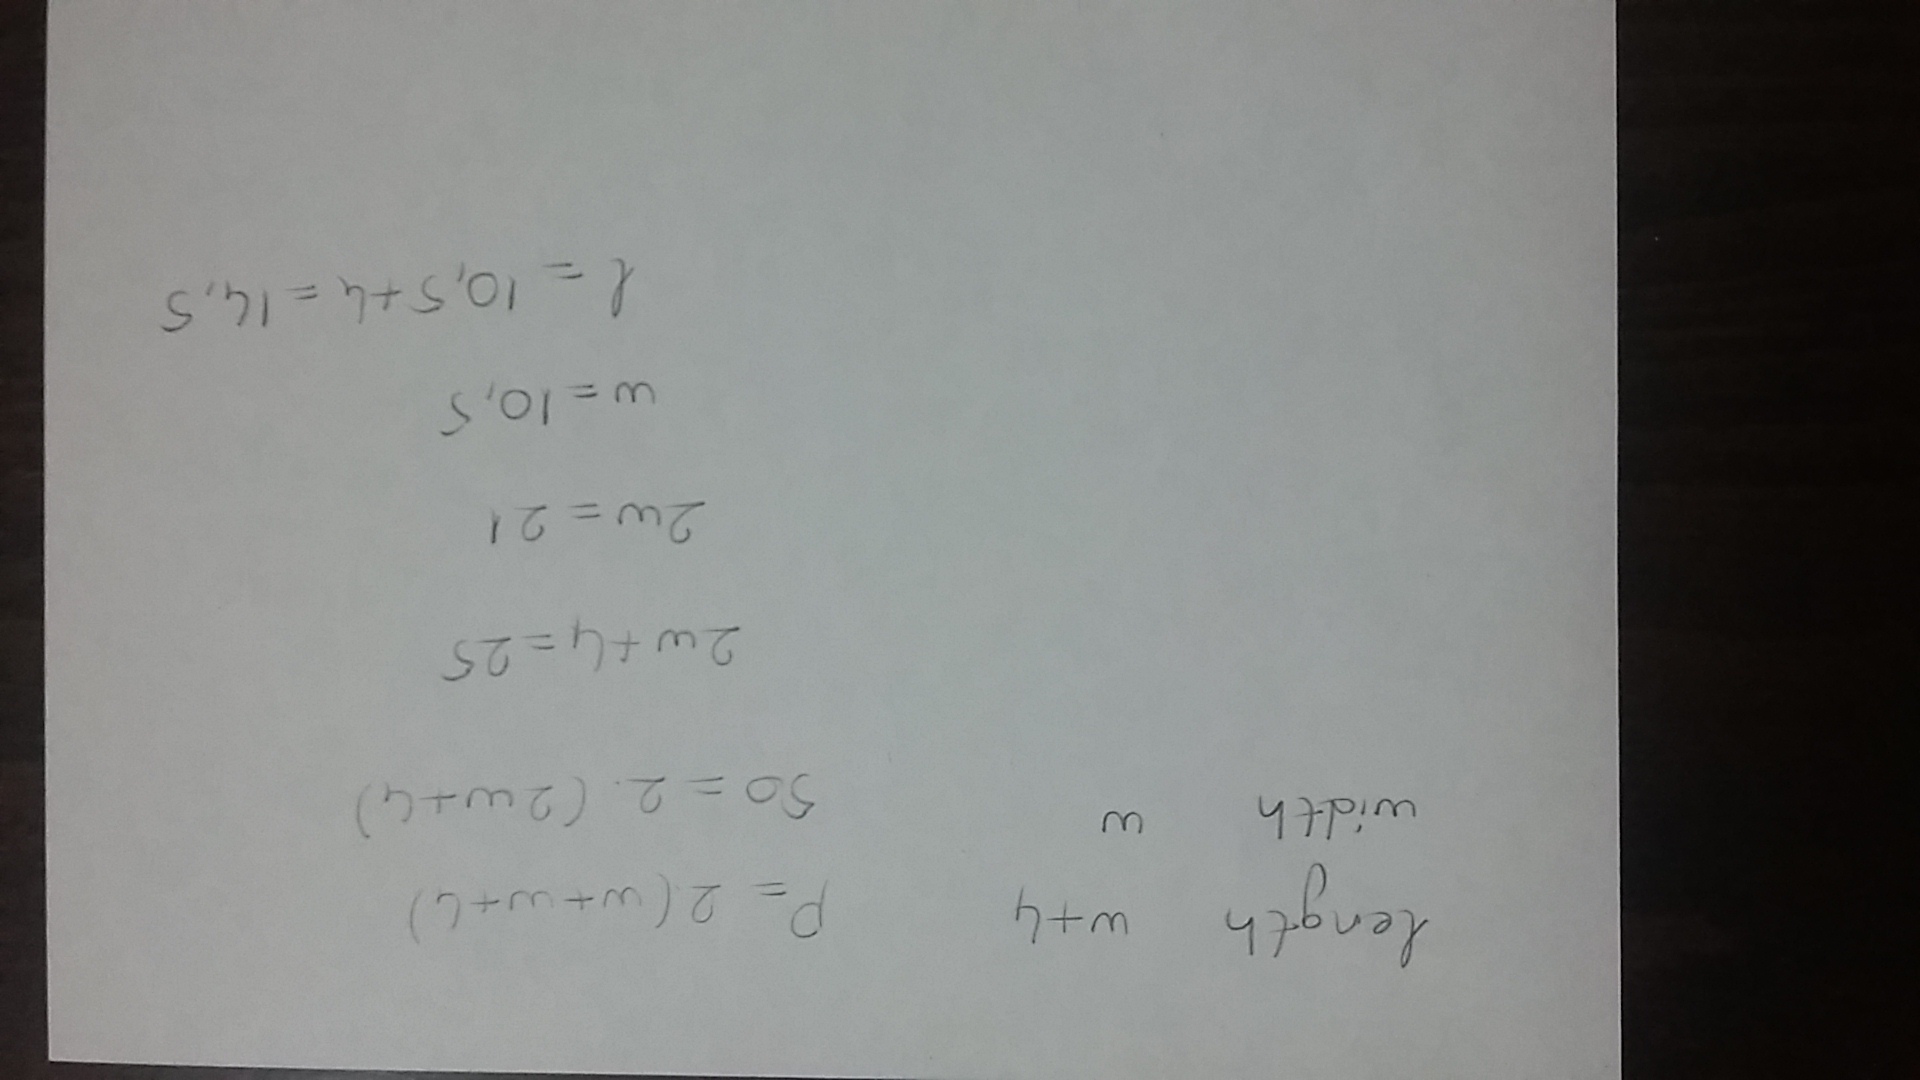 length w+4 P = 2(w+w+4)
width w 50 = 2.(2w+4)
2w+4=25
2w=21
w=10,5
l=10,5+4=14,5